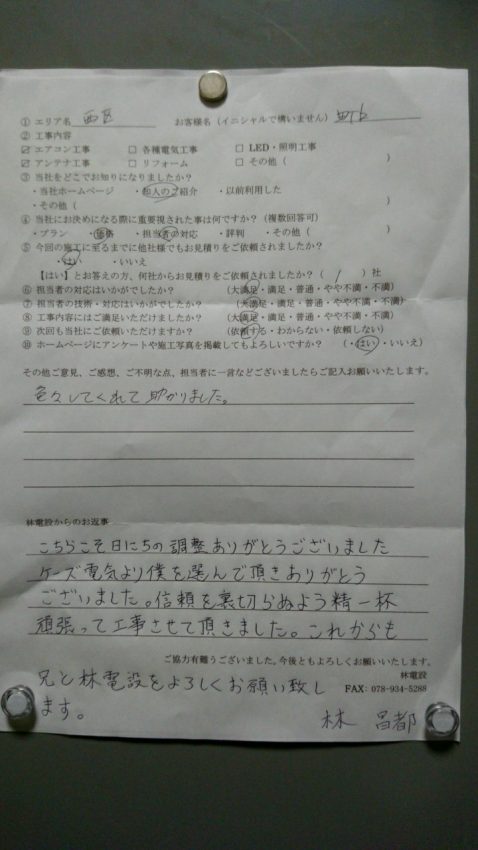 ① エリア名 西区 お客様名(イニシャルで構いません)
② 工事内容
☑ エアコン工事 □ 各種電気工事 □ LED・照明工事
☑ アンテナ工事 □ リフォーム □ その他( )
③ 当社をどこでお知りになりましたか?
・当社ホームページ ・知人のご紹介 ・以前利用した
・その他( )
④ 当社にお決めになる際に重要視された事は何ですか?(複数回答可)
・プラン ・価格 ・担当者の対応 ・評判 ・その他( )
⑤ 今回の施工に至るまでに他社様でもお見積りをご依頼されましたか?
・はい ・いいえ
【はい】とお答えの方、何社からお見積りをご依頼されましたか?( 1 )社
⑥ 担当者の対応はいかがでしたか? (大満足・満足・普通・やや不満・不満)
⑦ 担当者の技術・対応はいかがでしたか? (大満足・満足・普通・やや不満・不満)
⑧ 工事内容にはご満足いただけましたか? (大満足・満足・普通・やや不満・不満)
⑨ 次回も当社にご依頼いただけますか? (依頼する・わからない・依頼しない)
⑩ ホームページにアンケートや施工写真を掲載してもよろしいですか? (・はい・いいえ)
その他ご意見、ご感想、ご不明な点、担当者に一言などございましたらご記入お願いいたします。
色々してくれて助かりました。
林電設からのお返事
こちらこそ日にちの調整ありがとうございました
ケーズ電気より僕を選んで頂きありがとう
ございました。信頼を裏切らぬよう精一杯
頑張って工事させて頂きました。これからも
ご協力有難うございました。今後ともよろしくお願いいたします。
林電設
兄と林電設をよろしくお願い致し
FAX: 078-934-5288
ます。
林 昌都